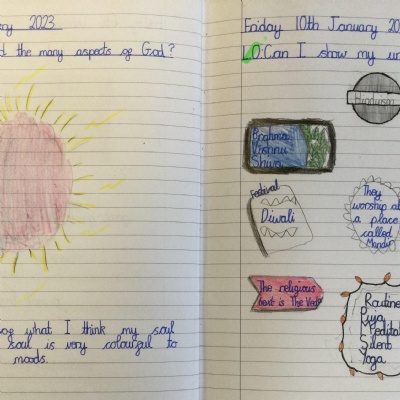 2023
the many aspects of God?
what I think my soul
soul is very colourful to
moods.
Friday 10th January 20
LO: Can I show my un
Hinduism
Brahma
Vishnu
Shiva
Festival
Diwali
They
worship at
a place
called
Mandir
The religious
text is The Veda
Routine
Puja
Meditat
Silent
Yoga